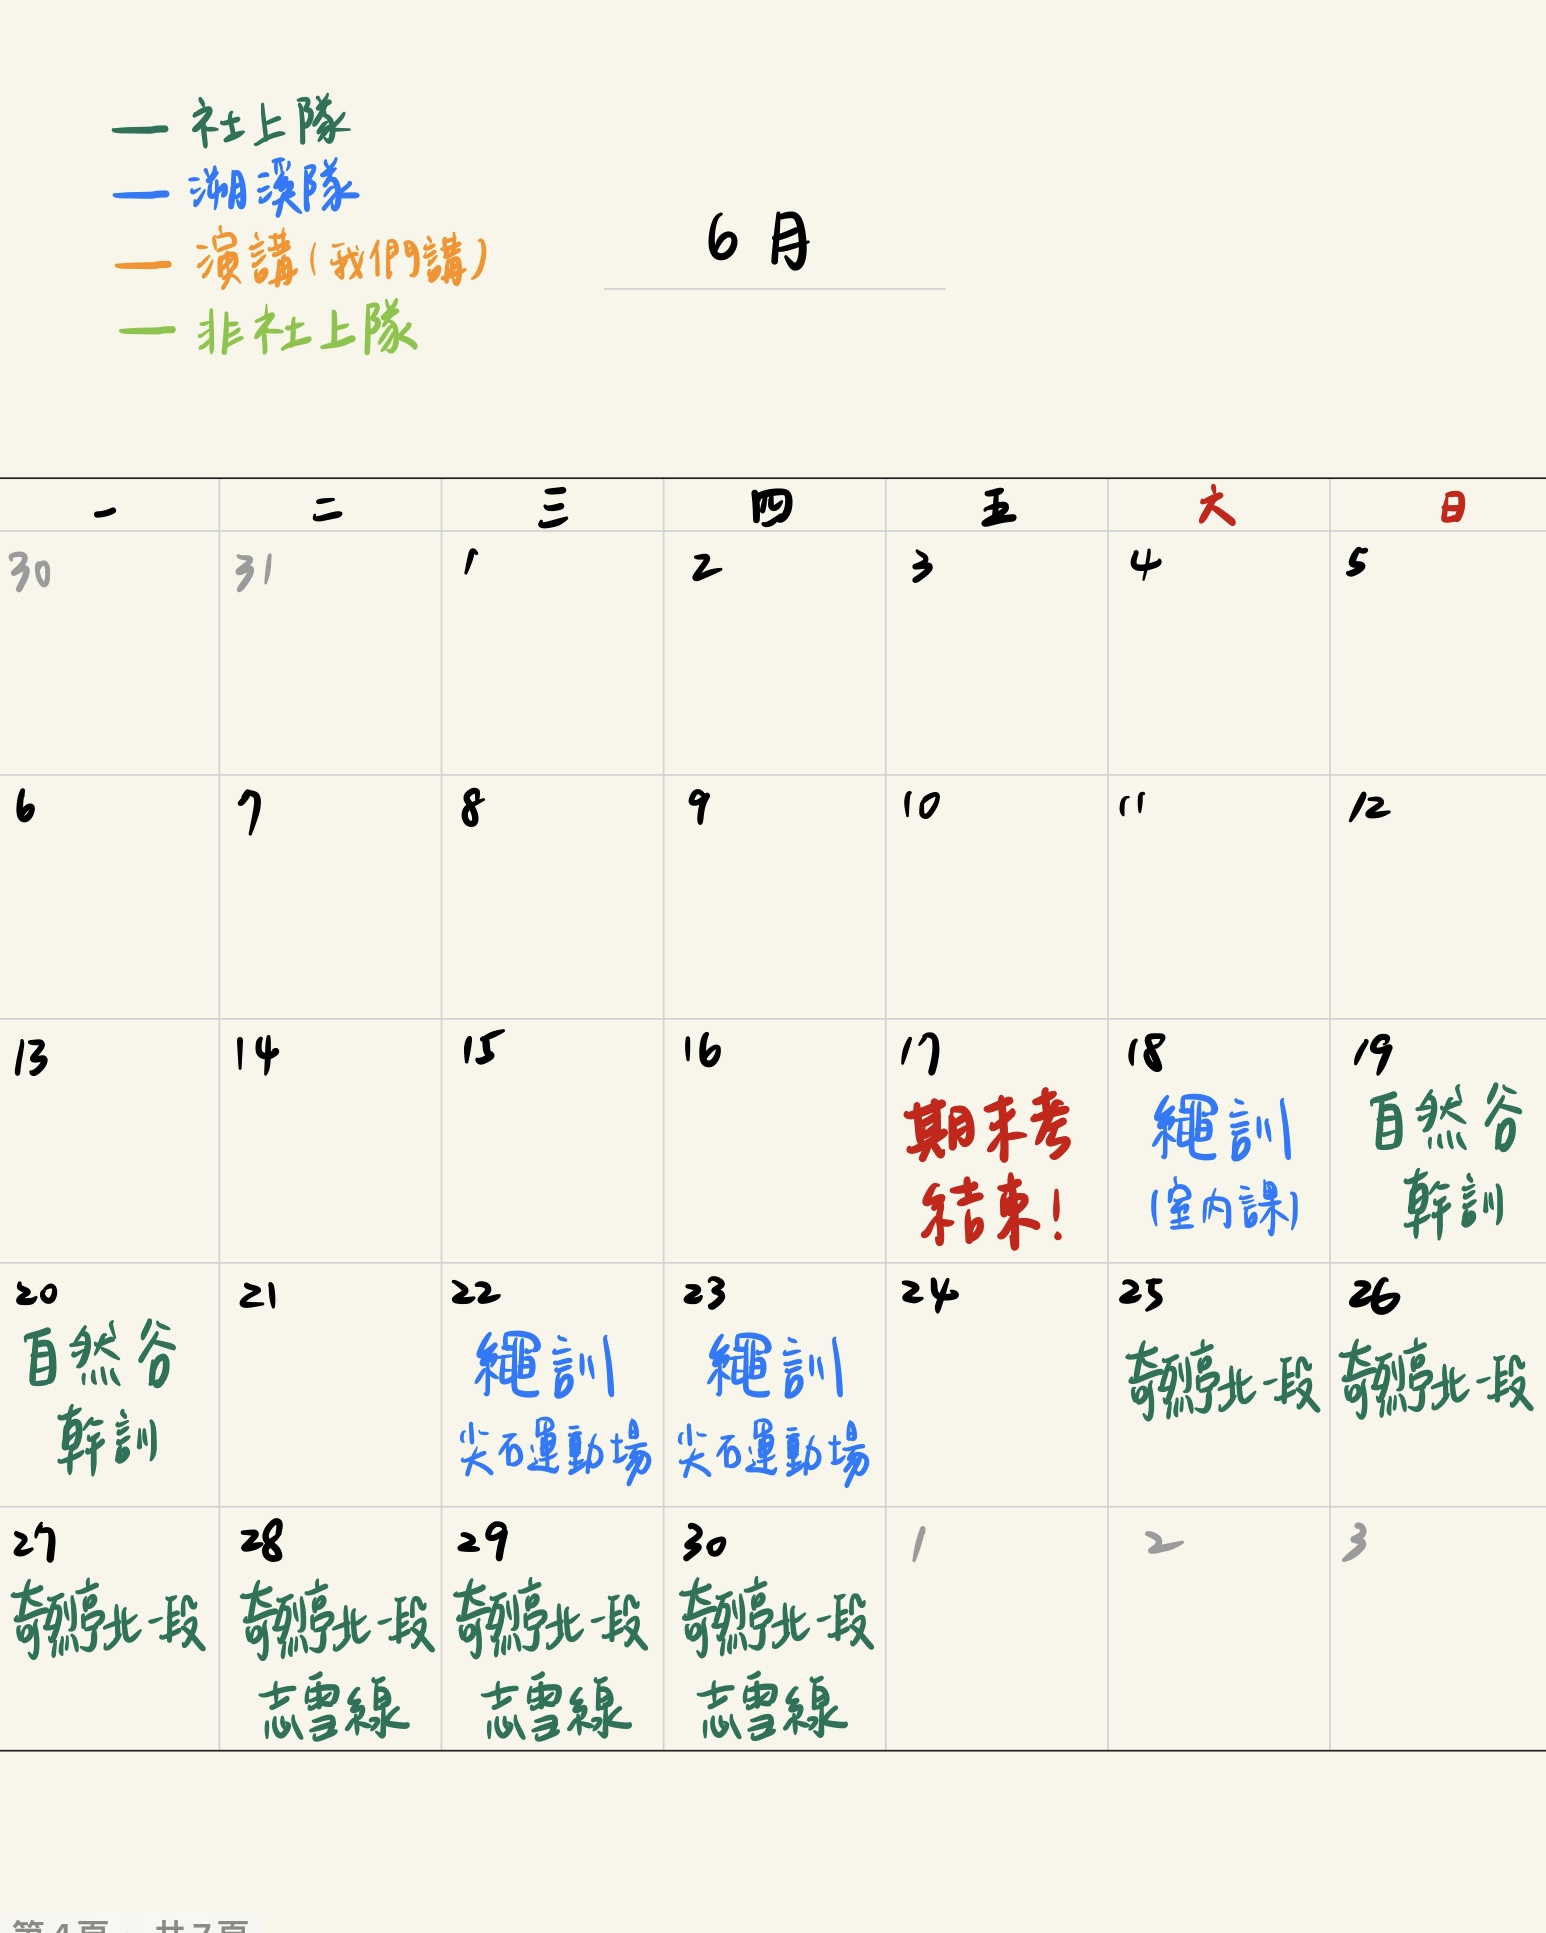 社上隊
溯溪隊
演講(我們講)
非社上隊
6月
一 二 三 四 五 六 日
30 31 1 2 3 4 5
6 7 8 9 10 11 12
13 14 15 16 17 18 19
期末考
結束!
繩訓
(室內課)
自然谷
幹訓
20 21 22 23 24 25 26
自然谷
幹訓
繩訓
尖石運動場
繩訓
尖石運動場
奇烈亭北一段
奇烈亭北一段
27 28 29 30 1 2 3
奇烈亭北一段
奇烈亭北一段
志雪線
奇烈亭北一段
志雪線
奇烈亭北一段
志雪線
第4頁 共7頁